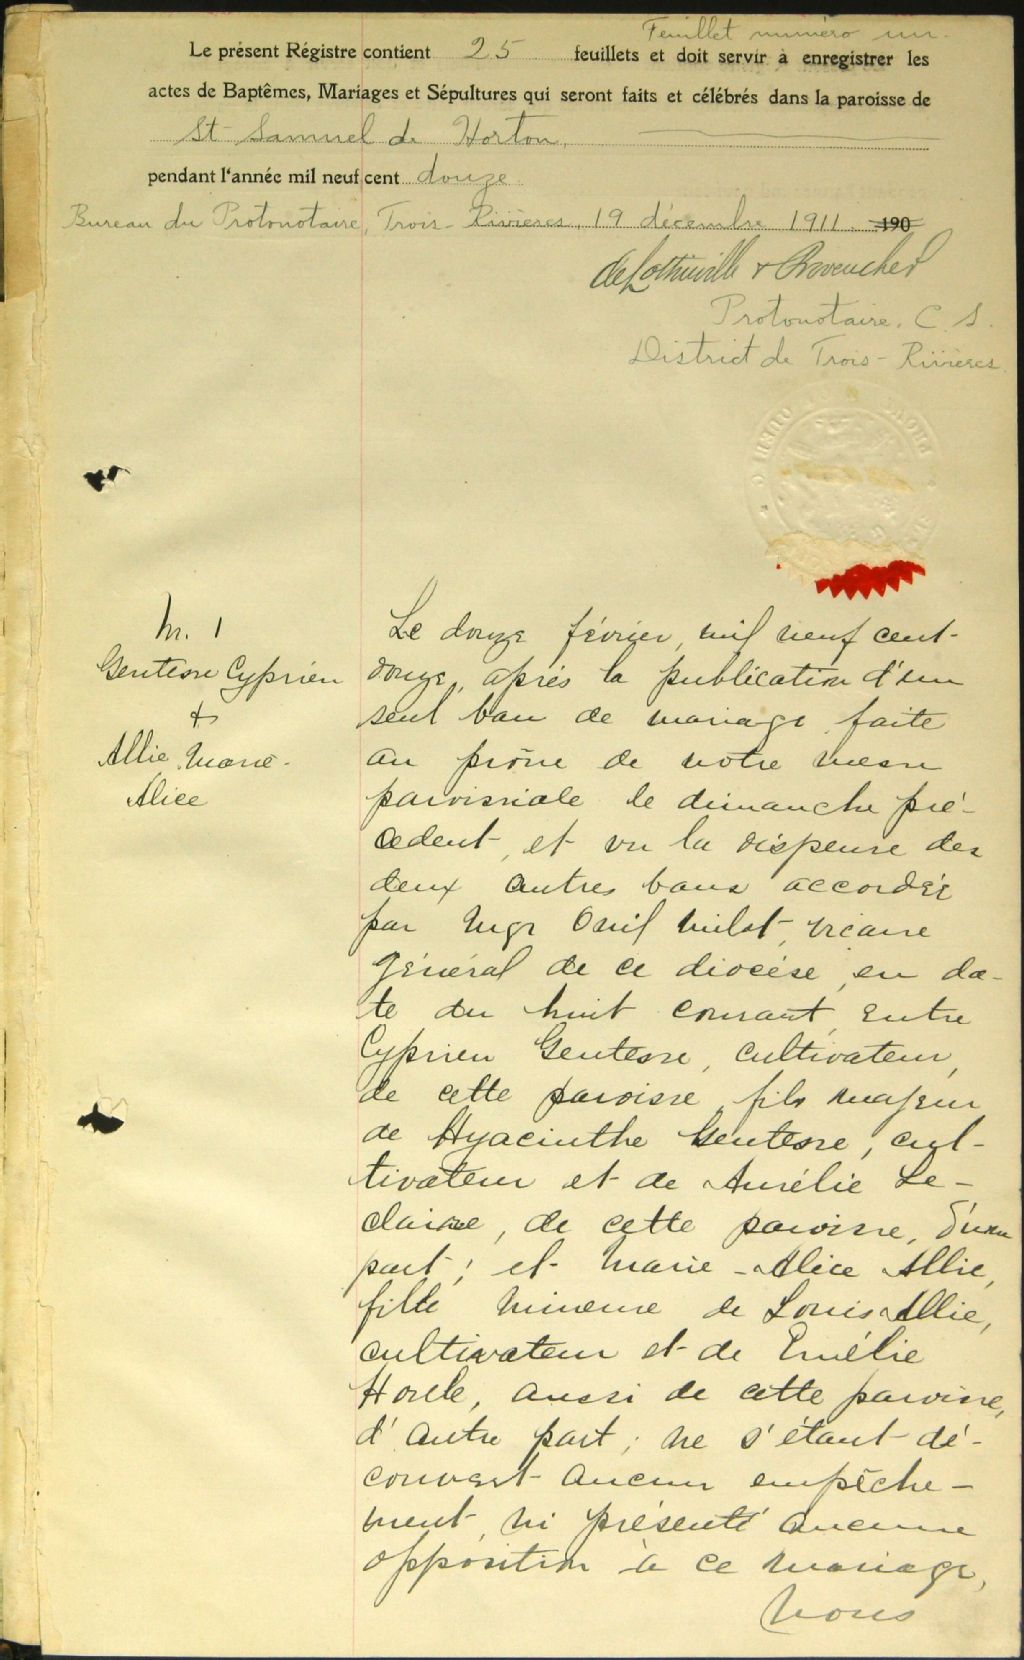 Feuillet numéro un.
Le présent Régistre contient 25 feuillets et doit servir à enregistrer les
actes de Baptêmes, Mariages et Sépultures qui seront faits et célébrés dans la paroisse de
St Samuel de Horton,
pendant l'année mil neuf cent douze
Bureau du Protonotaire, Trois-Rivières, 19 décembre 1911 190
deLottinville & Provencher
Protonotaire. C. S.
District de Trois-Rivières.
M. 1
Gentesse Cyprien
&
Allie Marie-
Alice
Le douze février, mil neuf cent-
douze, après la publication d'un
seul ban de mariage faite
au prône de notre messe
paroissiale le dimanche pré-
cedent, et vu la dispense des
deux autres bans accordée
par Mgr Milot, vicaire
Général de ce diocèse, en da-
te du huit courant, entre
Cyprien Gentesse, cultivateur,
de cette paroisse, fils majeur
de Hyacinthe Gentesse, cul-
tivateur et de Aurélie Le-
claire, de cette paroisse, d'une
part; et Marie-Alice Allie,
fille mineure de Louis Allie,
cultivateur et de Emélie
Houle, aussi de cette paroisse,
d'autre part; ne s'étant dé-
couvert aucun empêche-
ment, ni présenté aucune
opposition à ce mariage,
Nous